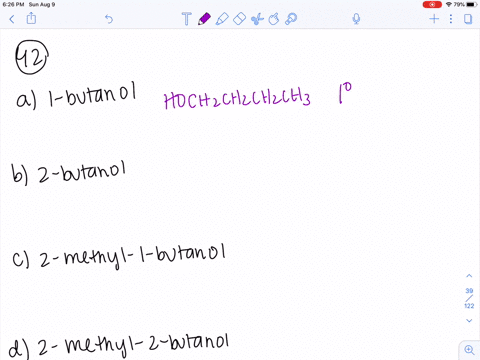 6:26 PM Sun Aug 9
79%
42
a) 1-butanol HOCH2CH2CH2CH3 1°
b) 2-butanol
c) 2-methyl-1-butanol
39
/
122
d) 2-methyl-2-butanol